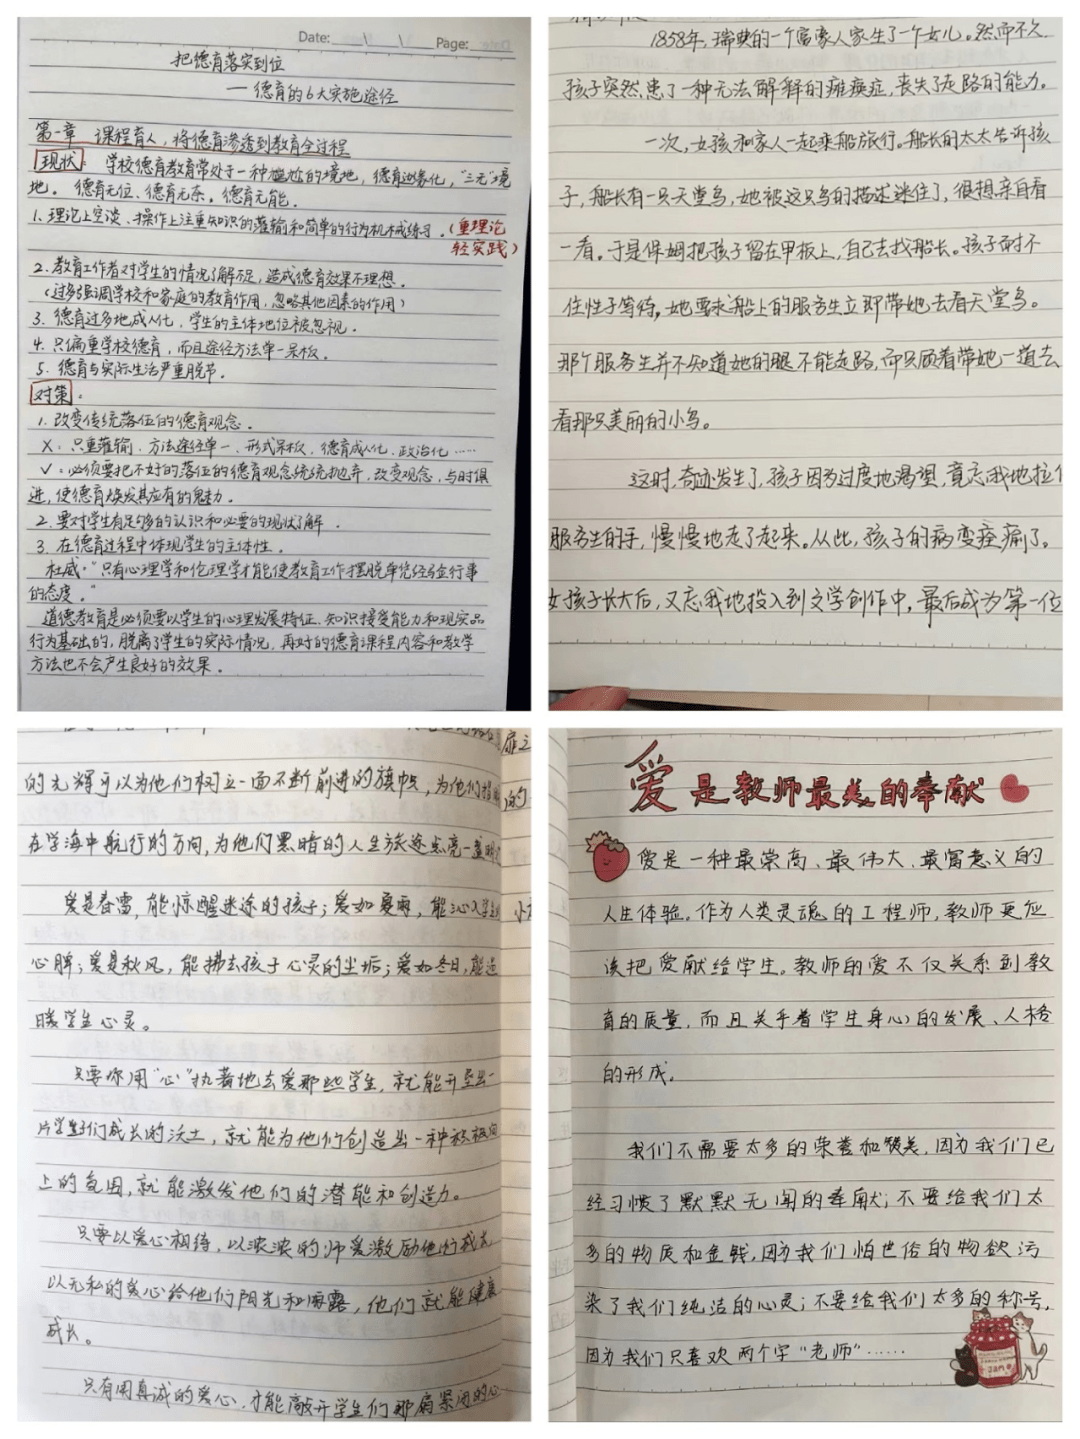 Date: / / Page:
把德育落实到位
— 德育的6大实施途径
第一章 课程育人，将德育渗透到教育全过程
现状： 学校德育教育常处于一种尴尬的境地，德育边缘化，“三无”境
地。德育无位、德育无东。德育无能.
1、理论上空谈、操作上注重知识的灌输和简单的行为机械练习.（重理论
轻实践）
2、教育工作者对学生的情况了解不足，造成德育效果不理想.
（过多强调学校和家庭的教育作用，忽略其他因素的作用）
3. 德育过多地成人化，学生的主体地位被忽视.
4. 只偏重学校德育，而且途径方法单一呆板.
5. 德育与实际生活严重脱节.
对策：
1. 改变传统落伍的德育观念.
X：只重灌输、方法途径单一、形式呆板，德育成人化、政治化……
√：必须要把不好的落伍的德育观念统统抛弃，改变观念，与时俱
进，使德育焕发其应有的魅力.
2. 要对学生有足够多的认识和必要的现状了解.
3. 在德育过程中体现学生的主体性.
杜威：“只有心理学和伦理学才能使教育工作摆脱单凭经验金行事
的态度.”
道德教育是必须要以学生的心理发展特征、知识接受能力和现实品
行为基础的，脱离了学生的实际情况，再好的德育课程内容和教学
方法也不会产生良好的效果.
1858年，瑞典的一个富豪人家生了一个女儿。然而不久，
孩子突然患了一种无法解释的瘫痪症，丧失了走路的能力。
一次，女孩和家人一起乘船旅行。船长的太太告诉孩
子，船长有一只天堂鸟，她被这只鸟的描述迷住了，很想亲自看
一看。于是保姆把孩子留在甲板上，自己去找船长。孩子耐不
住性子等待，她要求船上的服务生立即带她去看天堂鸟。
那个服务生并不知道她的腿不能走路，而只顾着带她一道去
看那只美丽的小鸟。
这时，奇迹发生了，孩子因为过度地渴望，竟忘我地拉
服务生的手，慢慢地走了起来。从此，孩子的病变痊癒了。
女孩子长大后，又忘我地投入到文学创作中，最后成为第一位
的光辉可以为他们树立一面不断前进的旗帜，为他们
在学海中航行的方向，为他们黑暗的人生旅途点亮一盏
爱是春雷，能惊醒迷途的孩子；爱如夏雨，能沁入学生
心脾；爱是秋风，能拂去孩子心灵的尘垢；爱如冬日，能温
暖学生心灵。
只要你用“心”执着地去爱那些学生，就能开垦出一
片学生们成长的沃土，就能为他们创造出一种积极向
上的氛围，就能激发他们的潜能和创造力。
只要以爱心相待，以浓浓的师爱激励他们成长，
以无私的爱心给他们阳光和雨露，他们就能健康
成长。
只有用真诚的爱心，才能敲开学生们那扇紧闭的心
爱是教师最美的奉献
爱是一种最崇高、最伟大、最富意义的
人生体验。作为人类灵魂的工程师，教师更应
该把爱献给学生。教师的爱不仅关系到教
育的质量，而且关乎着学生身心的发展、人格
的形成.
我们不需要太多的荣誉和赞美，因为我们已
经习惯了默默无闻的奉献；不要给我们太
多的物质和金钱，因为我们怕世俗的物欲污
染了我们纯洁的心灵；不要给我们太多的称号，
因为我们只喜欢两个字“老师”……